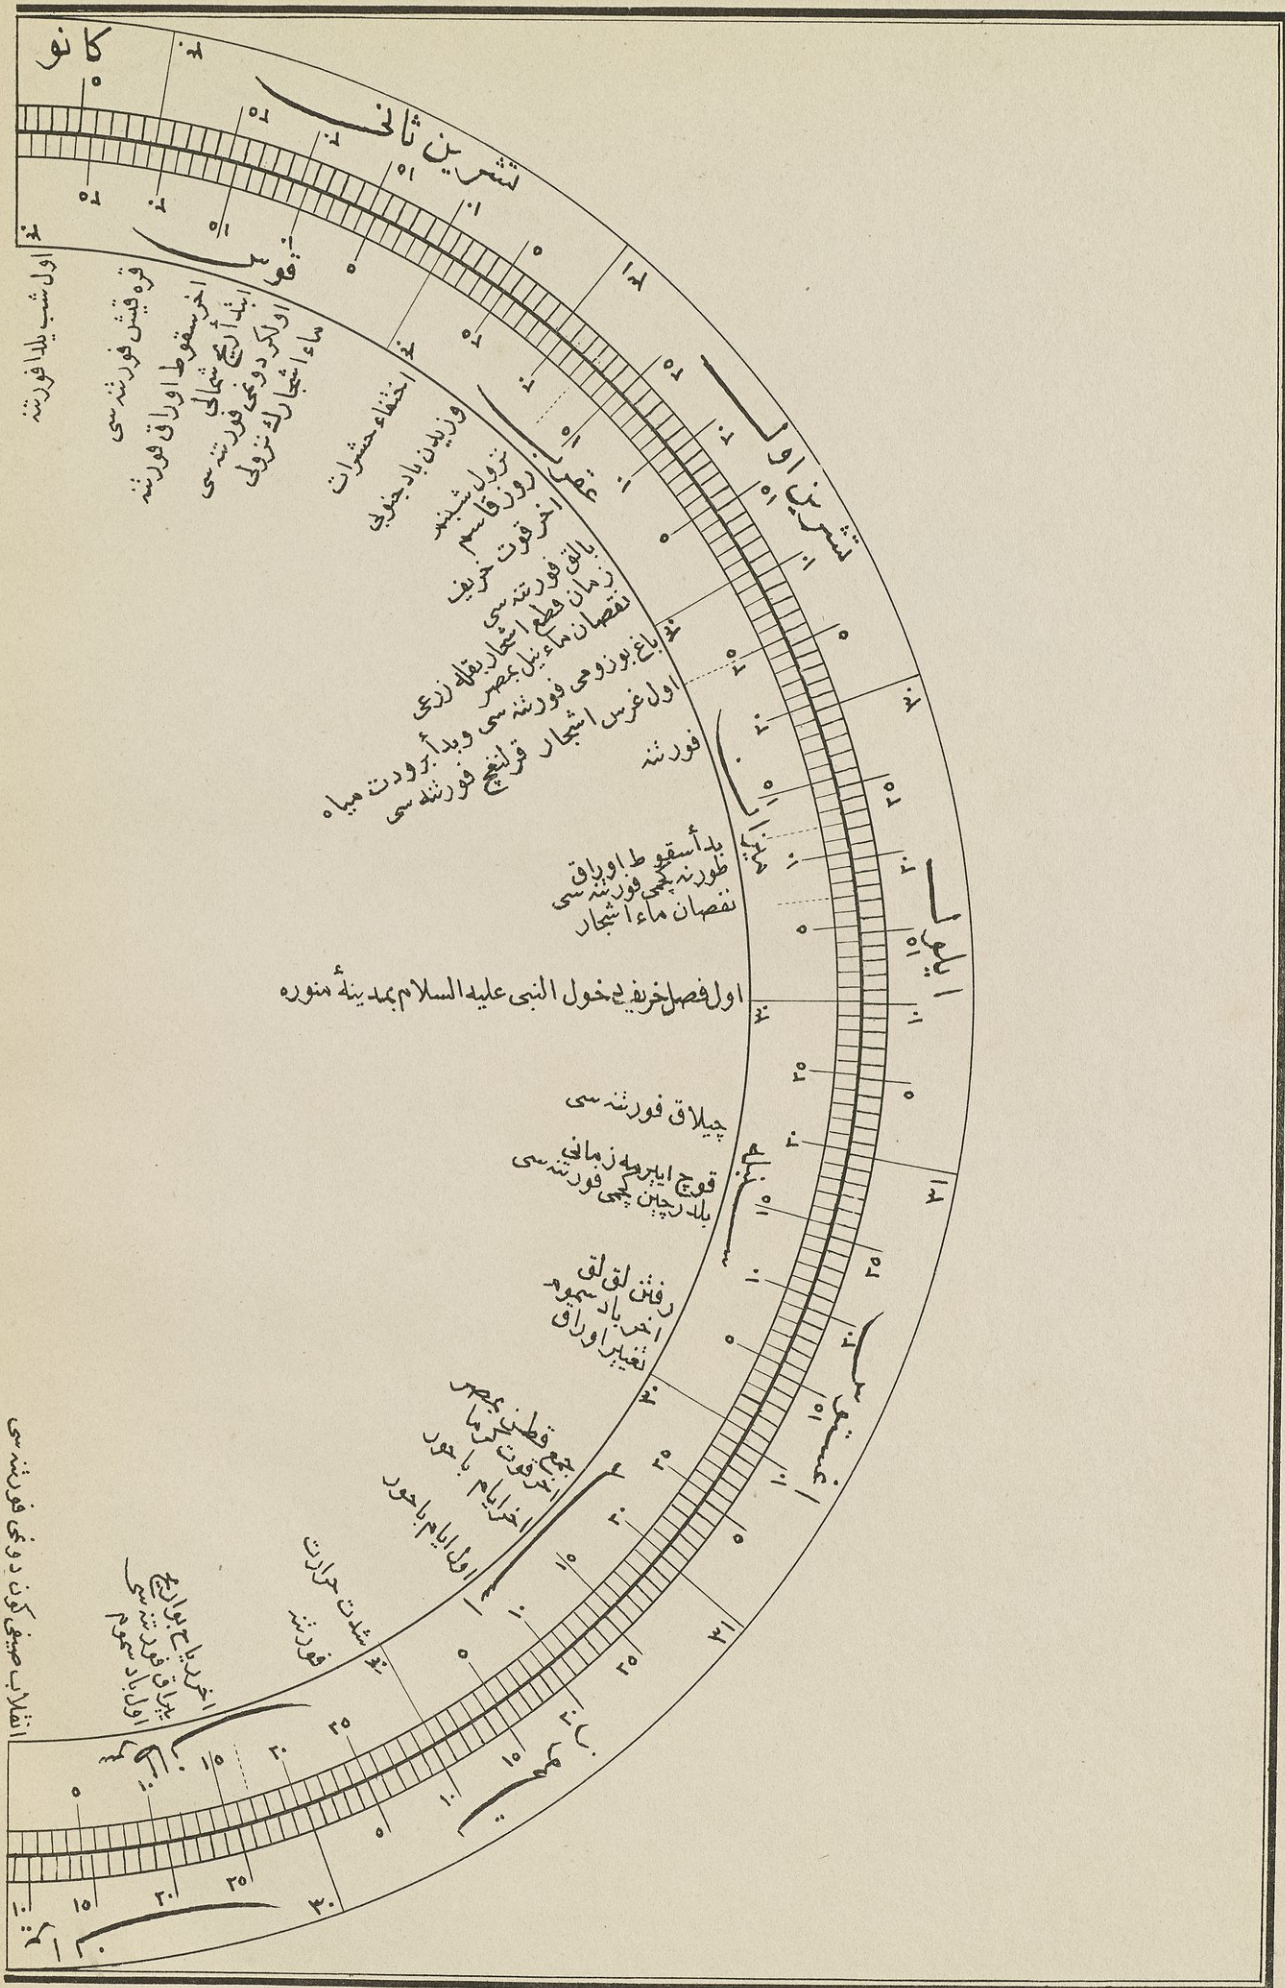 كانو
تشرين ثانى
تشرين اول
ايلول
اغستوس
تموز
حزيران
قوس
عقرب
ميزان
سنبله
اسد
سرطان
اول شب يلدا فورتنه
قره قيش فورتنه سى
اخر سقوط اوراق فورتنه
ابتداء ريح شمالي
اولكر دونمى فورتنه سى
ماء اشجارك نزولى
اختفاء حشرات
وزيدن باد جنوبى
نزول شبنم
روز قاسم
اخر قوت خريف
بالق فورتنه سى
زمان قطع اشجار بقله زرعى
نقصان ماء نيل بمصر
باغ بوزومى فورتنه سى وبدأ برودت مياه
اول غرس اشجار قرلنغج فورتنه سى
فورتنه
بدأ سقوط اوراق
طورنه كچمى فورتنه سى
نقصان ماء اشجار
اول فصل خريف دخول النبى عليه السلام بمدينۀ منوره
چيلاق فورتنه سى
قوچ ايپرمه زمانى
بلدرچين كچمى فورتنه سى
رفتن لق لق
اخر باد سموم
تغيير اوراق
جمع قطن بمصر
اخر قوت گرما
اخر ايام باحور
اول ايام باحور
شدت حرارت
فورتنه
اخر رياح بوارح
يپراق فورتنه سى
اول باد سموم
انقلاب صيفى كون دونمى فورتنه سى